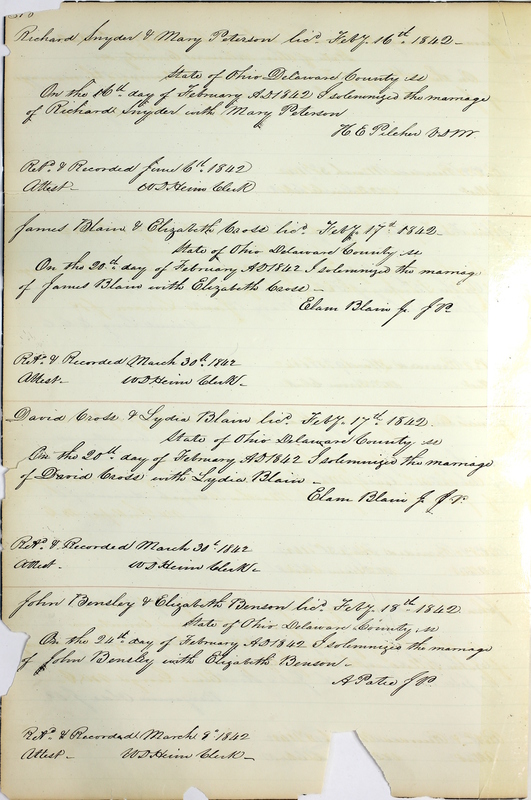 Richard Snyder & Mary Peterson licd. Feby. 16th. 1842-
State of Ohio Delaware County ss
On the 16th day of February AD 1842 I solemnized the marriage
of Richard Snyder with Mary Peterson
H E Pilcher V.D.M
Retd. & Recorded June 6th. 1842
Attest- W D Heim Clerk
James Blain & Elizabeth Cross licd. Feby. 17th 1842-
State of Ohio Delaware County ss
On the 20th day of February AD 1842 I solemnized the marriag
of James Blain with Elizabeth Cross-
Elam Blain Jr. J P.
Retd. & Recorded March 30th. 1842
Attest- W D Heim Clerk-
David Cross & Lydia Blain licd. Feby. 17th. 1842.
State of Ohio Delaware County ss
On the 20th. day of February AD 1842 I solemnized the marriage
of David Cross with Lydia Blain-
Elam Blain Jr. J P.
Retd. & Recorded March 30th 1842
Attest- W D Heim Clerk-
John Bensley & Elizabeth Benson licd. Feby. 18th. 1842.
State of Ohio Delaware County ss
On the 24th. day of February AD 1842 I solemnized the marriage
of John Bensley with Elizabeth Benson-
A Patee J P.
Retd. & Recorded March 8th 1842
Attest- W D Heim Clerk-